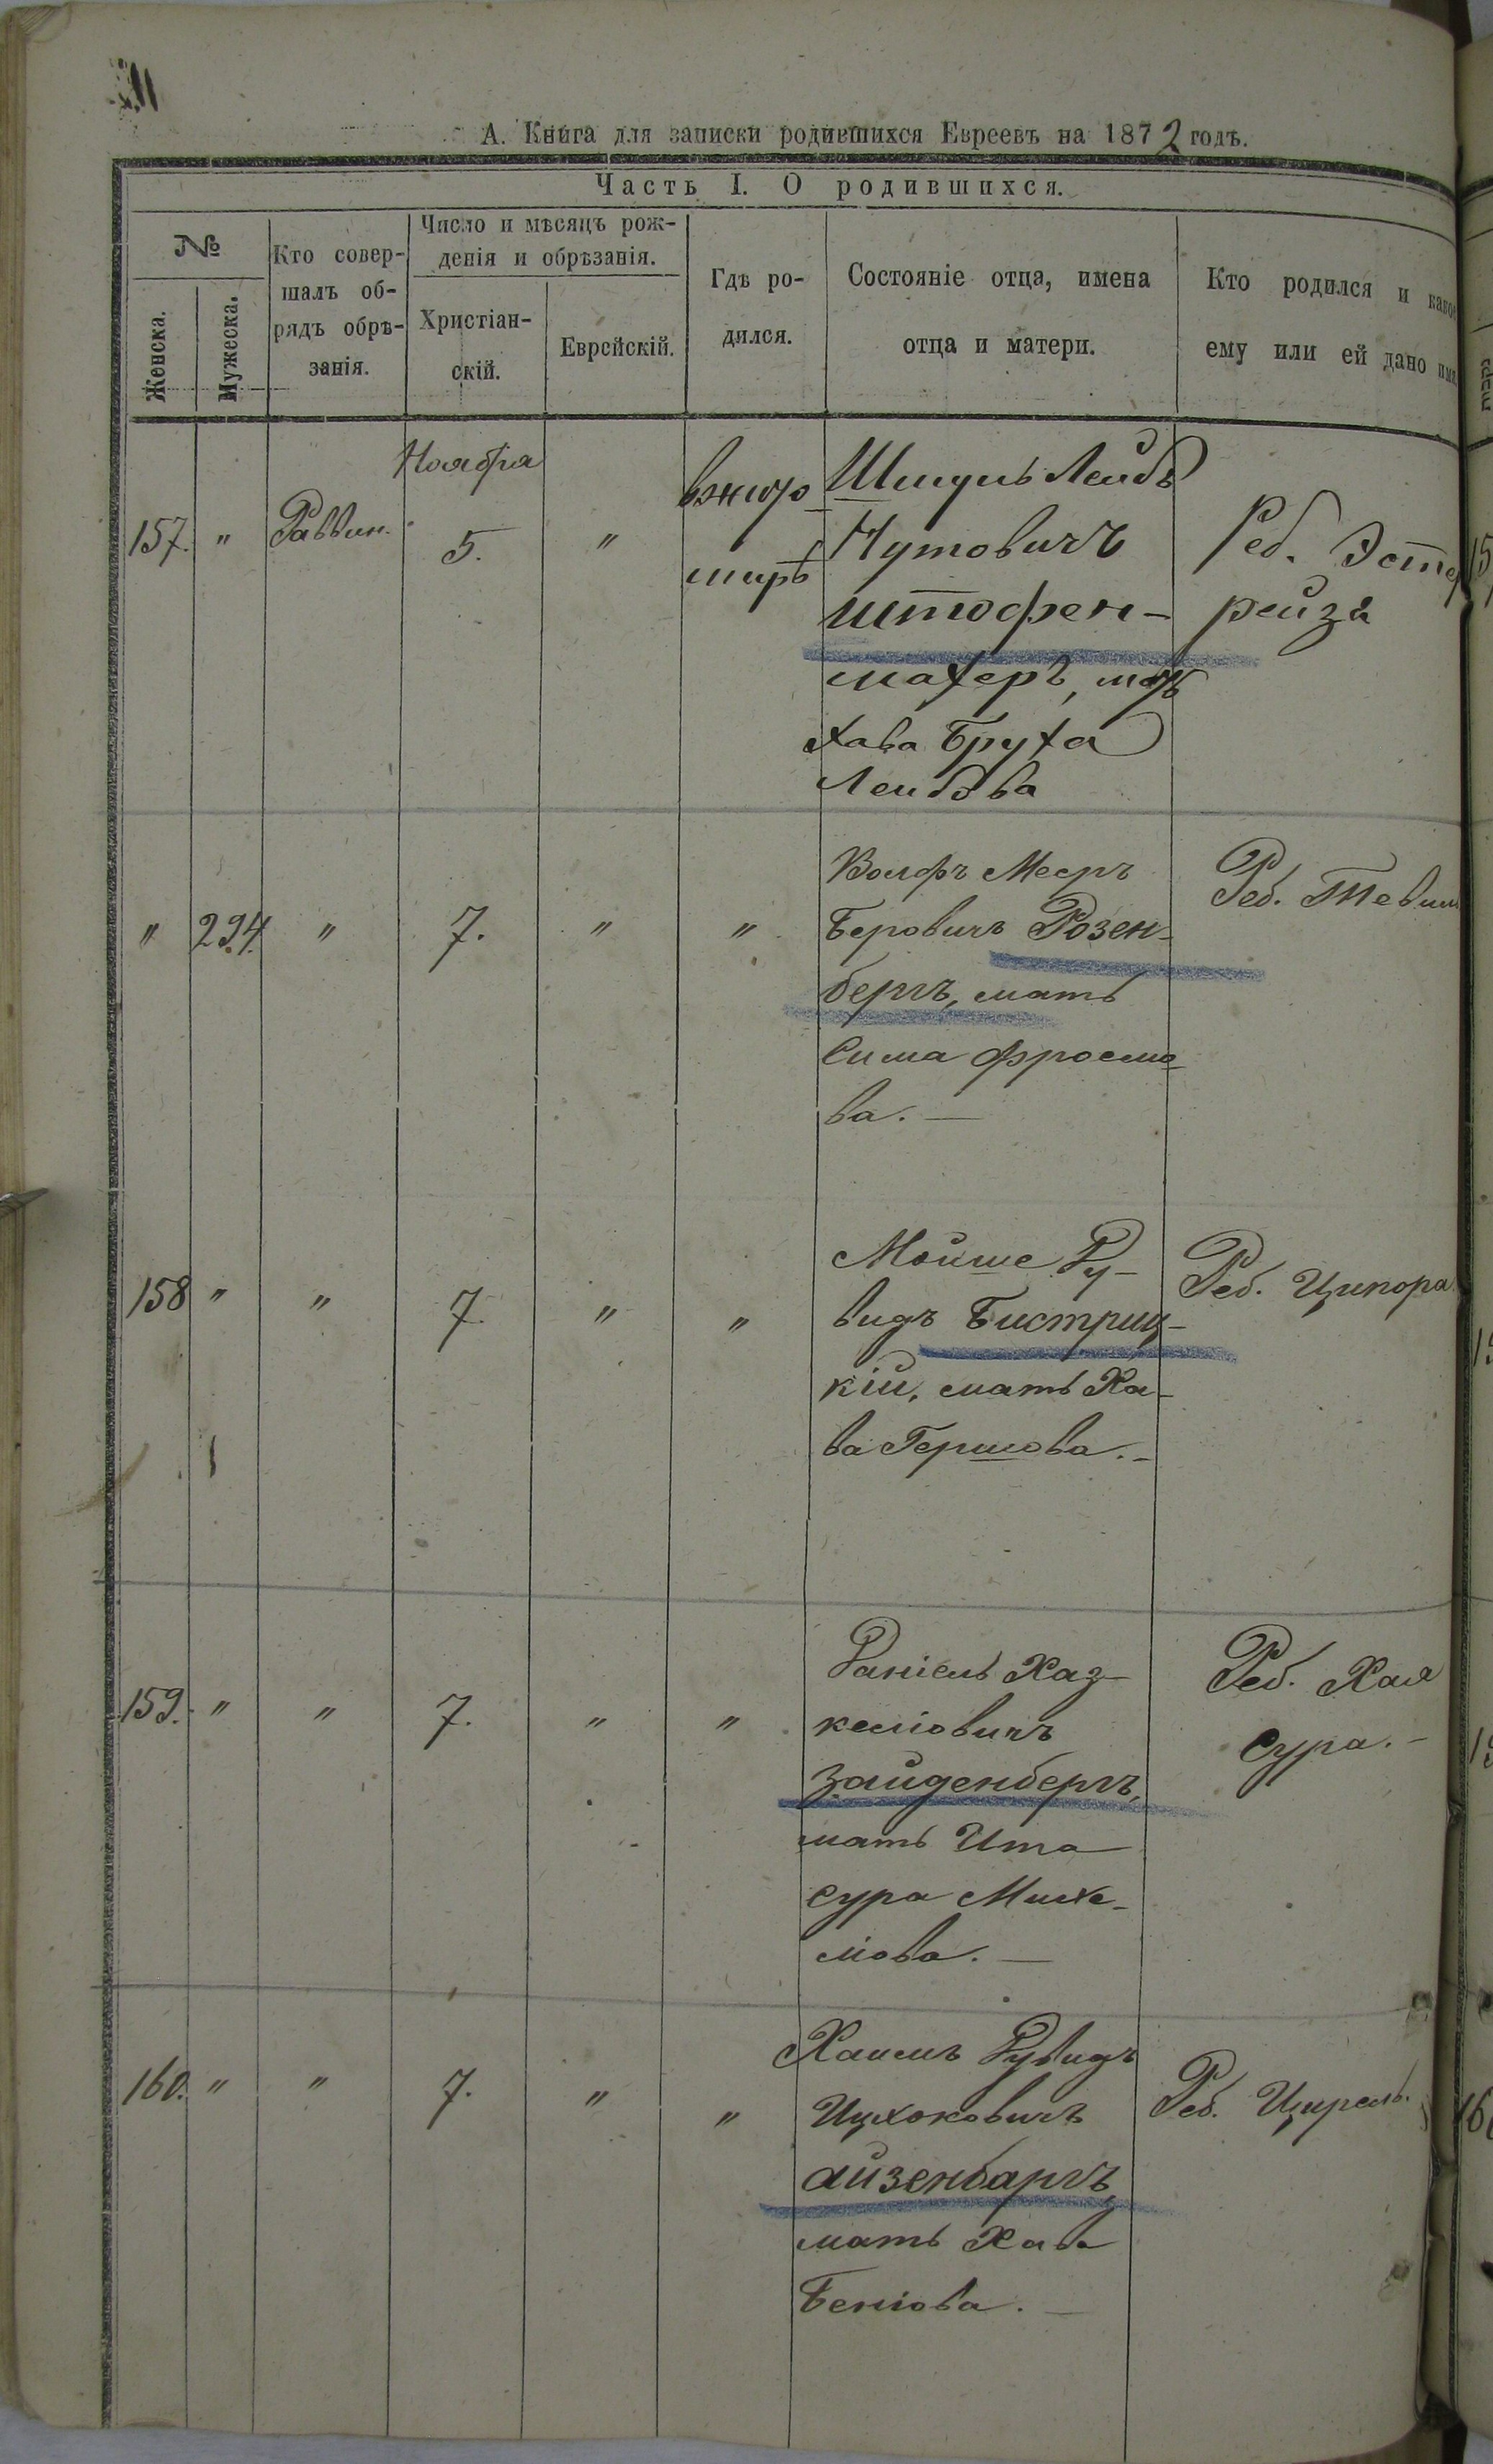 А. Книга для записки родившихся Евреевъ на 1872 годъ.
Часть I. О родившихся.
№
Женска.
Мужеска.
Кто совер-
шалъ об-
рядъ обрѣ-
занія.
Число и мѣсяцъ рож-
денія и обрѣзанія.
Христіан-
скій.
Еврейскій.
Гдѣ ро-
дился.
Состояніе отца, имена
отца и матери.
Кто родился и какое
ему или ей дано имя
Ноября
157. " Раввин. 5. "
вжито-
миръ
Шмуль Леибъ
Нутовичъ
штофен-
махеръ, мать
Хава Бруха
Леибова
Реб. Эстер
реиза
" 294. " 7. " "
Волфъ Мееръ
Беровичъ Розен-
бергъ, мать
Сима Фроемо-
ва. —
Реб. Тевии
158 " " 7. " "
Моише Ду-
видъ Бистриц-
кій, мать Ха-
ва Гершова. -
Реб. Ципора
159. " " 7. " "
Даніель Хаз-
келіовичъ
Зайденбергъ,
мать Ита
Сура Михе-
ліова. —
Реб. Хая
Сура. -
160. " " 7. " "
Хаимъ Дувидъ
Ицхоковичъ
айзенбаргъ,
мать Хава
Беніова. —
Реб. Цирель.